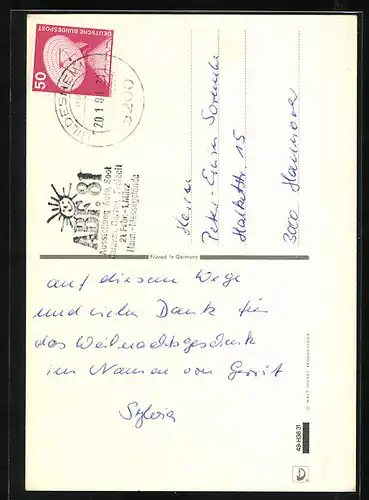 DEUTSCHE BUNDESPOST
50
20.1.81
3200
ABF. 81
Ausstellung Auto, Boot,
Freizeit
21. Febr.-1. März
Hann.-Messegelände
Herrn
Peter-
15
3000 Hannover
Printed in Germany
auf diesem Wege
und vielen Dank für
das Weihnachtsgeschenk
im Namen von Gerrit
Sylvia
© WALT DISNEY PRODUCTIONS
49-H36/31